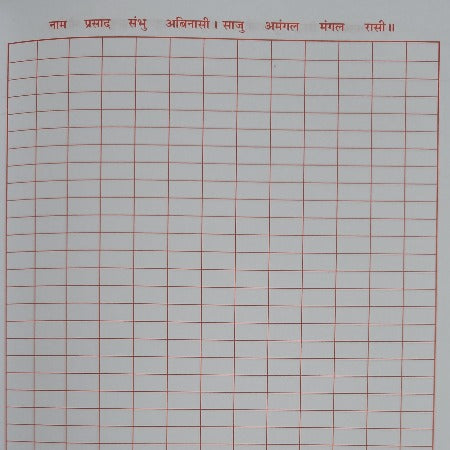 नाम प्रसाद संभु अबिनासी। साजु अमंगल मंगल रासी॥